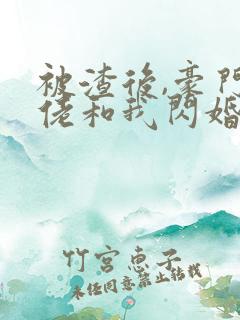 被渣後,豪門
佬和我閃婚
竹宮惠子
未经同意禁止转载